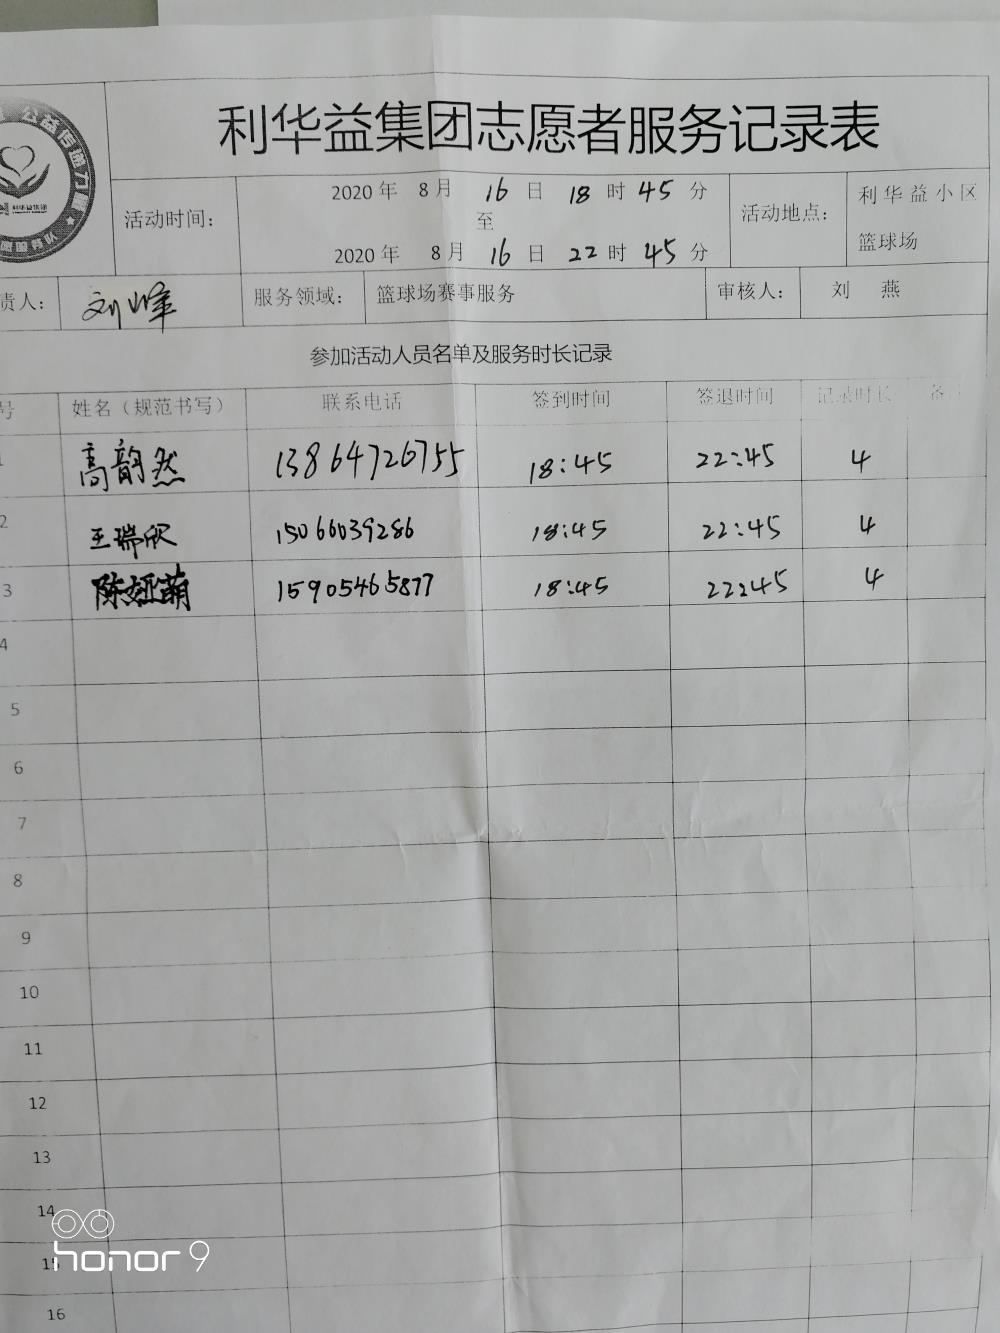 公益传递力量
利华益集团
利华益集团志愿者服务记录表
活动时间：
2020年 8月 16日 18时 45分
至
2020年 8月 16日 22时 45分
活动地点：
利华益小区
篮球场
责人： 刘峰 服务领域： 篮球场赛事服务 审核人： 刘 燕
参加活动人员名单及服务时长记录
号 姓名（规范书写） 联系电话 签到时间 签退时间 记录时长 备
1 高韵然 13864726755 18:45 22:45 4
2 王瑞欣 15066039286 18:45 22:45 4
3 陈娅萌 15905465877 18:45 22:45 4
4
5
6
7
8
9
10
11
12
13
14
15
16
honor 9